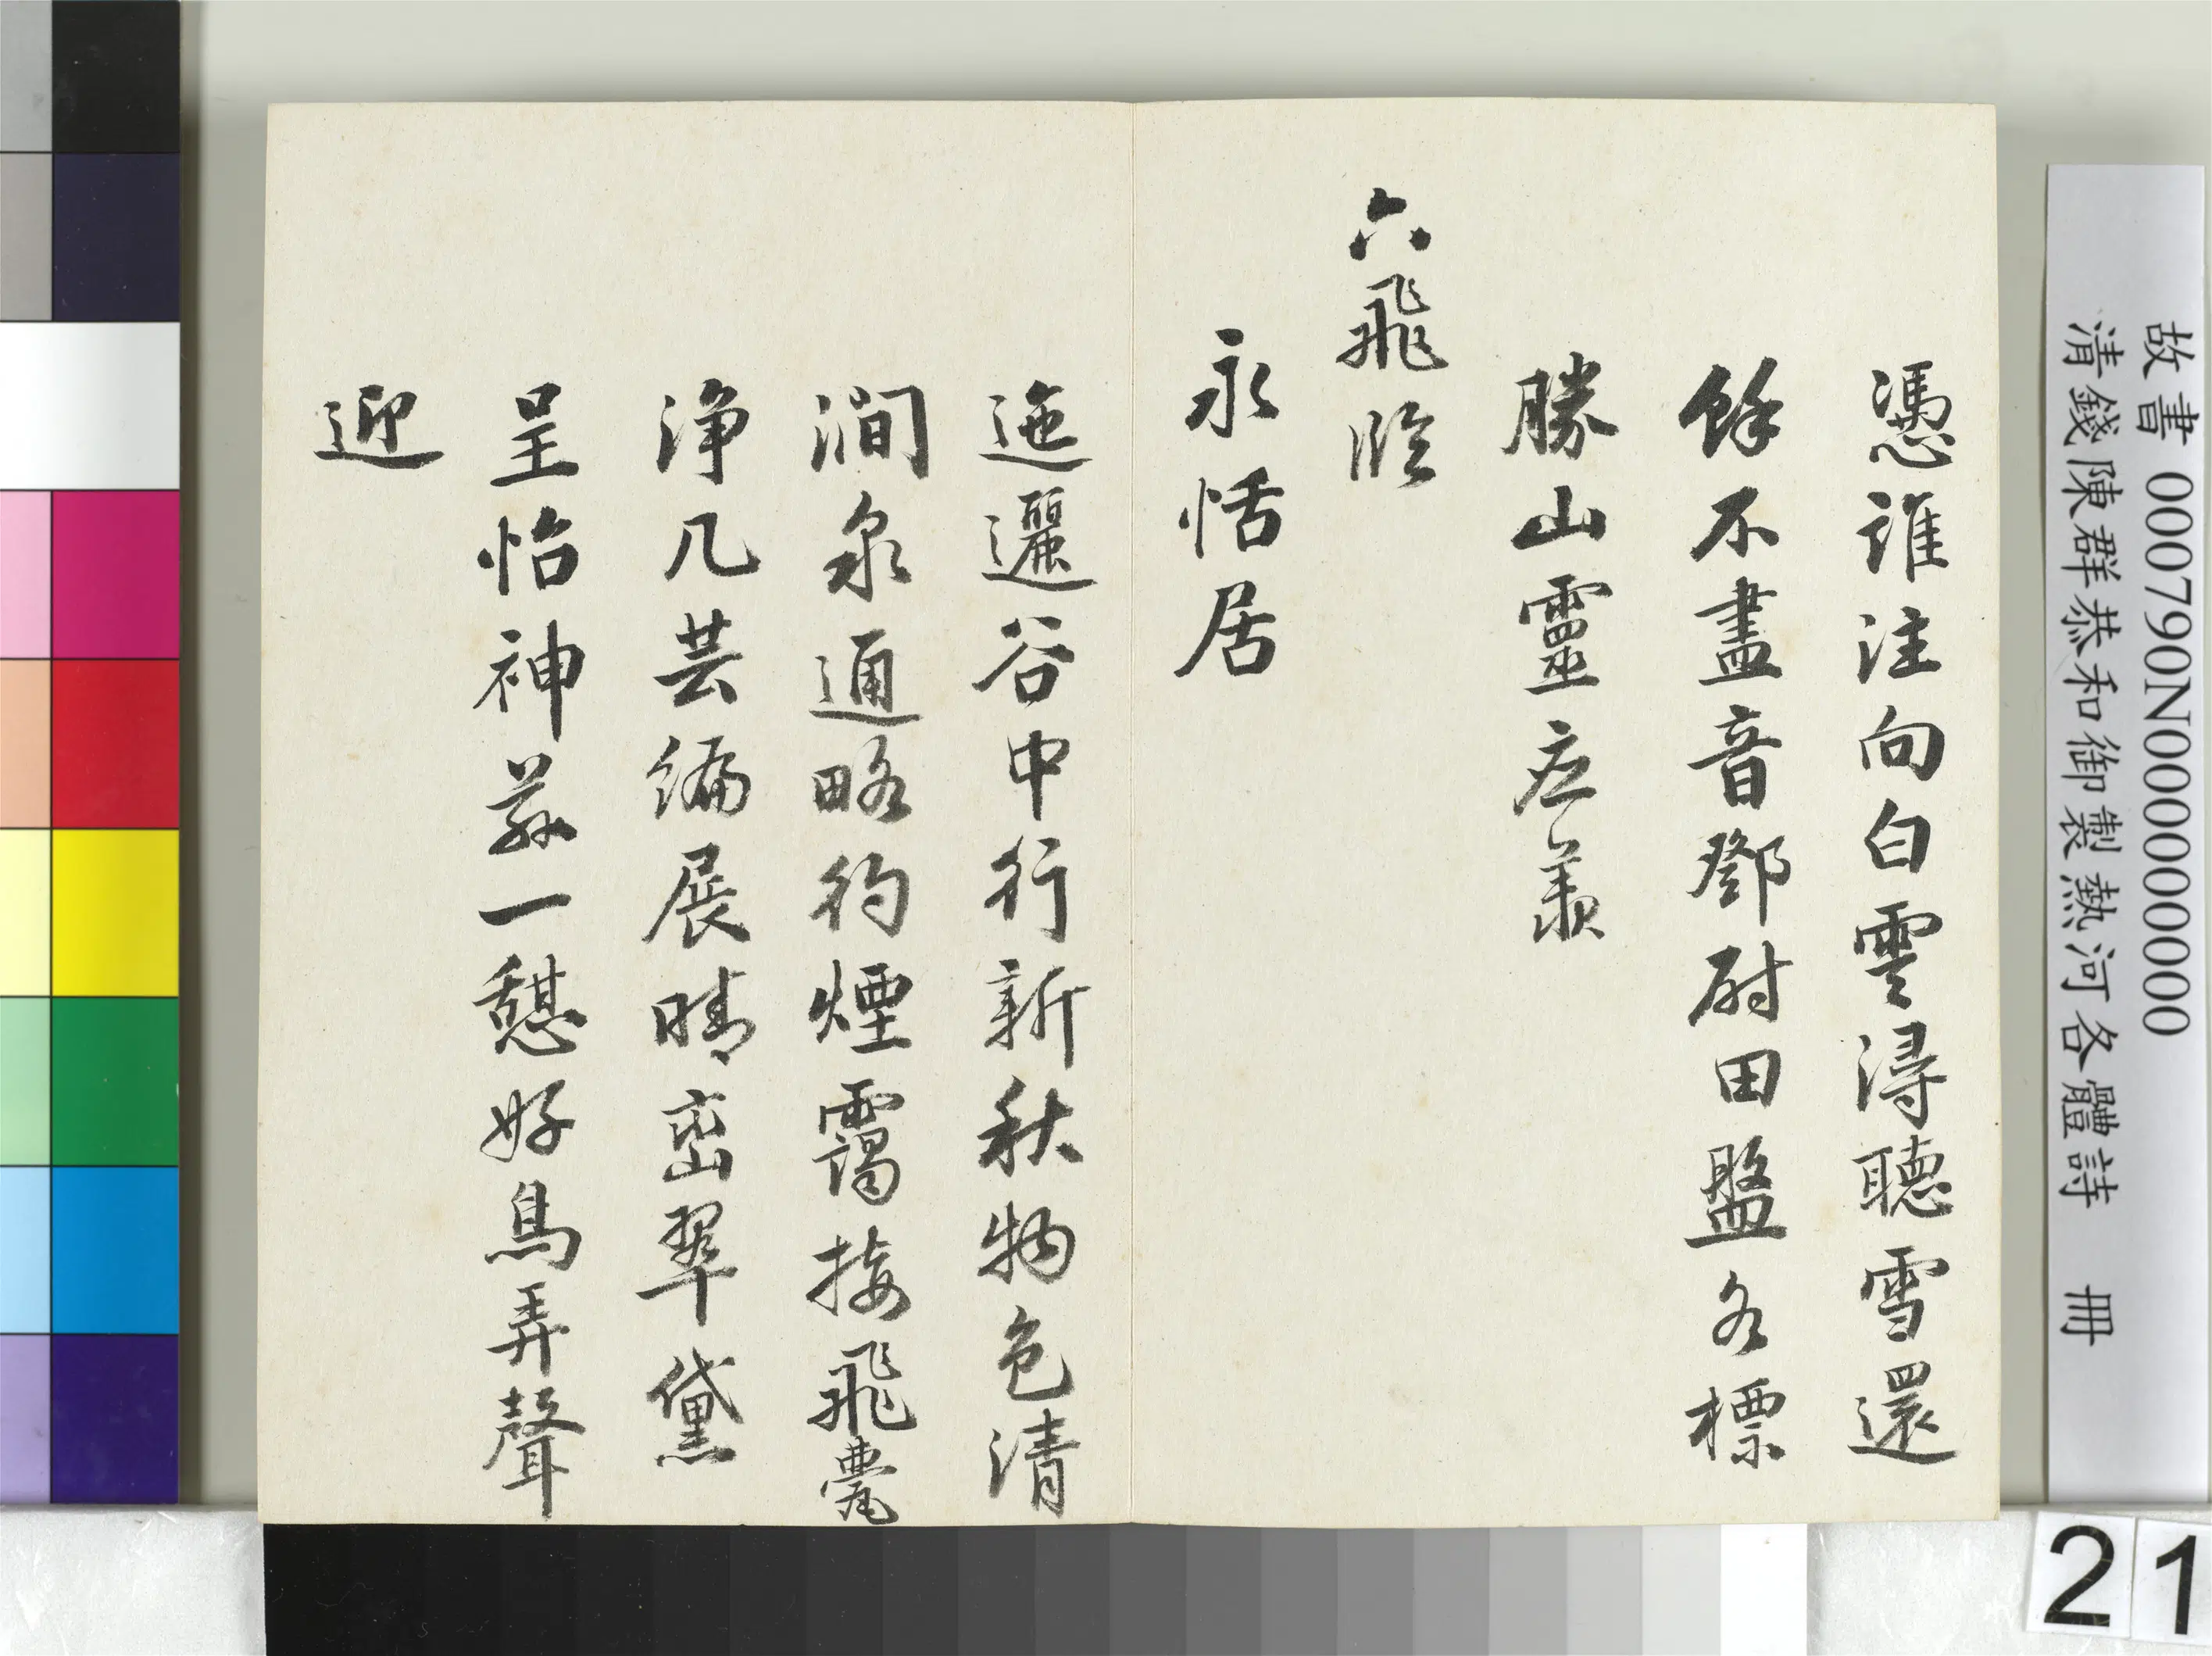 憑誰注向白雲潯聽雪還
餘不盡音鄧尉田盤名標
勝山靈应羨
六飛臨
永恬居
迤邐谷中行新秋物色清
澗泉通略彴煙靄接飛甍
淨几芸編展晴巒翠黛
呈怡神兹一憩好鳥弄聲
迎
故書 000790N000000000
清錢陳群恭和御製熱河各體詩 冊
21